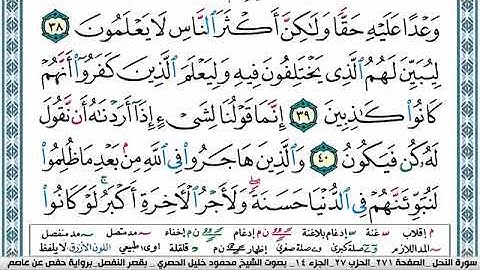 وَعْدًا عَلَيْهِ حَقًّا وَلَٰكِنَّ أَكْثَرَ النَّاسِ لَا يَعْلَمُونَ ٣٨
لِيُبَيِّنَ لَهُمُ الَّذِي يَخْتَلِفُونَ فِيهِ وَلِيَعْلَمَ الَّذِينَ كَفَرُوا أَنَّهُمْ
كَانُوا كَاذِبِينَ ٣٩ إِنَّمَا قَوْلُنَا لِشَيْءٍ إِذَا أَرَدْنَاهُ أَن نَّقُولَ
لَهُ كُن فَيَكُونُ ٤٠ وَالَّذِينَ هَاجَرُوا فِي اللَّهِ مِن بَعْدِ مَا ظُلِمُوا
لَنُبَوِّئَنَّهُمْ فِي الدُّنْيَا حَسَنَةً وَلَأَجْرُ الْآخِرَةِ أَكْبَرُ لَوْ كَانُوا
م إقلاب غنة إدغام بلاغنة ن م إدغام ن م إخفاء مد متصل مد منفصل
المد اللازم صلة كبرى صلة صغرى إظهار ن م قلقلة اوى طبيعي اللون الأزرق لا يلفظ
سورة النحل _ الصفحة ٢٧١ _ الحزب ٢٧ _ الجزء ١٤ _ بصوت الشيخ محمود خليل الحصري _ بقصر المنفصل _ برواية حفص عن عاصم